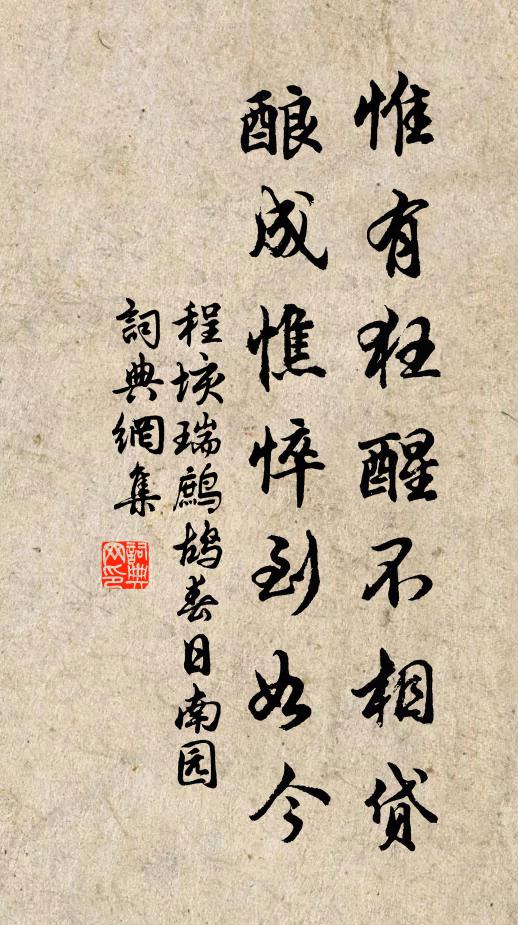 惟有狂醒不相貸
酿成憔悴到如今
程垓瑞鷓鴣春日南园
詞典網集
詞典网印